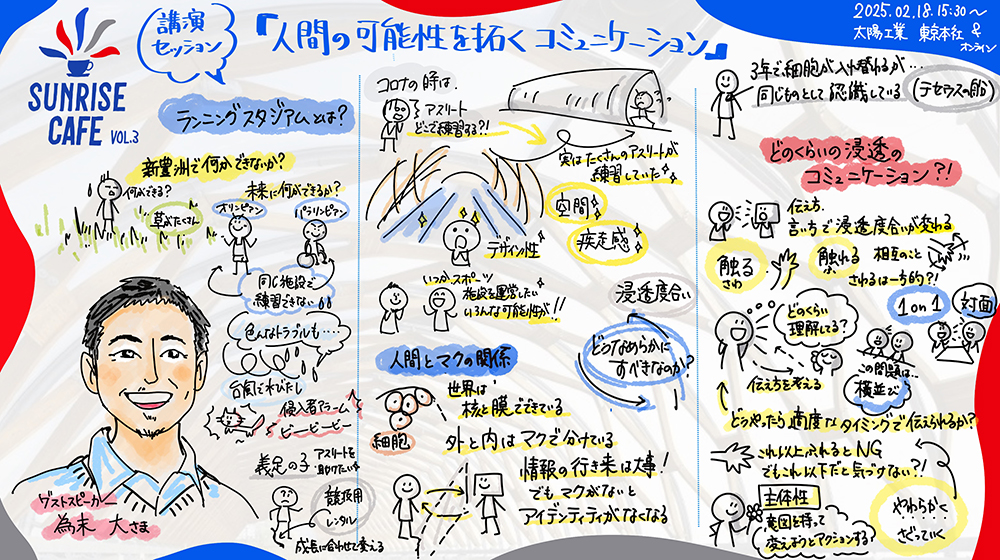 SUNRISE
CAFE VOL.3
講演
セッション
「人間の可能性を拓くコミュニケーション」
2025.02.18.15:30〜
太陽工業 東京本社 &
オンライン
ランニングスタジアムとは?
新豊洲で何かできないか?
何ができる?
草がたくさん
未来に何ができるか?
オリンピアン
パラリンピアン
同じ施設で
練習できない
色んなトラブルも……
台風でわびたし
侵入者アラーム
ビービービー
義足の子
アスリートを
助けたい
競技用
レンタル
成長に合わせて変える
ゲストスピーカー
為末 大さま
コロナの時は、
アスリート
どこで練習する?!
実はたくさんのアスリートが
練習していた
空間
疾走感
デザイン性
いつかスポーツ
施設を運営したい
いろんな可能性が!!
浸透度合い
どうなめらかに
すべきなのか?
人間とマクの関係
世界は
核と膜でできている
細胞
外と内はマクで分けている
情報の行き来は大事!
でもマクがないと
アイデンティティがなくなる
3年で細胞が入れ替わるが…
同じものとして認識している
テセウスの船
どのくらいの浸透の
コミュニケーション?!
伝え方、
言い方で浸透度合いが変わる
触る
さわ
触れる
ふ
相互のこと
さわるは一方的?!
どのくらい
理解してる?
1on1
対面
この問題は…
横並び
伝え方を考える
どうやったら適度なタイミングで伝えられるか?
これ以上ふれるとNG
でもこれ以下だと気づけない?!
主体性
意図を持って
変えようとアクションする?
やわらかく
ざっていく